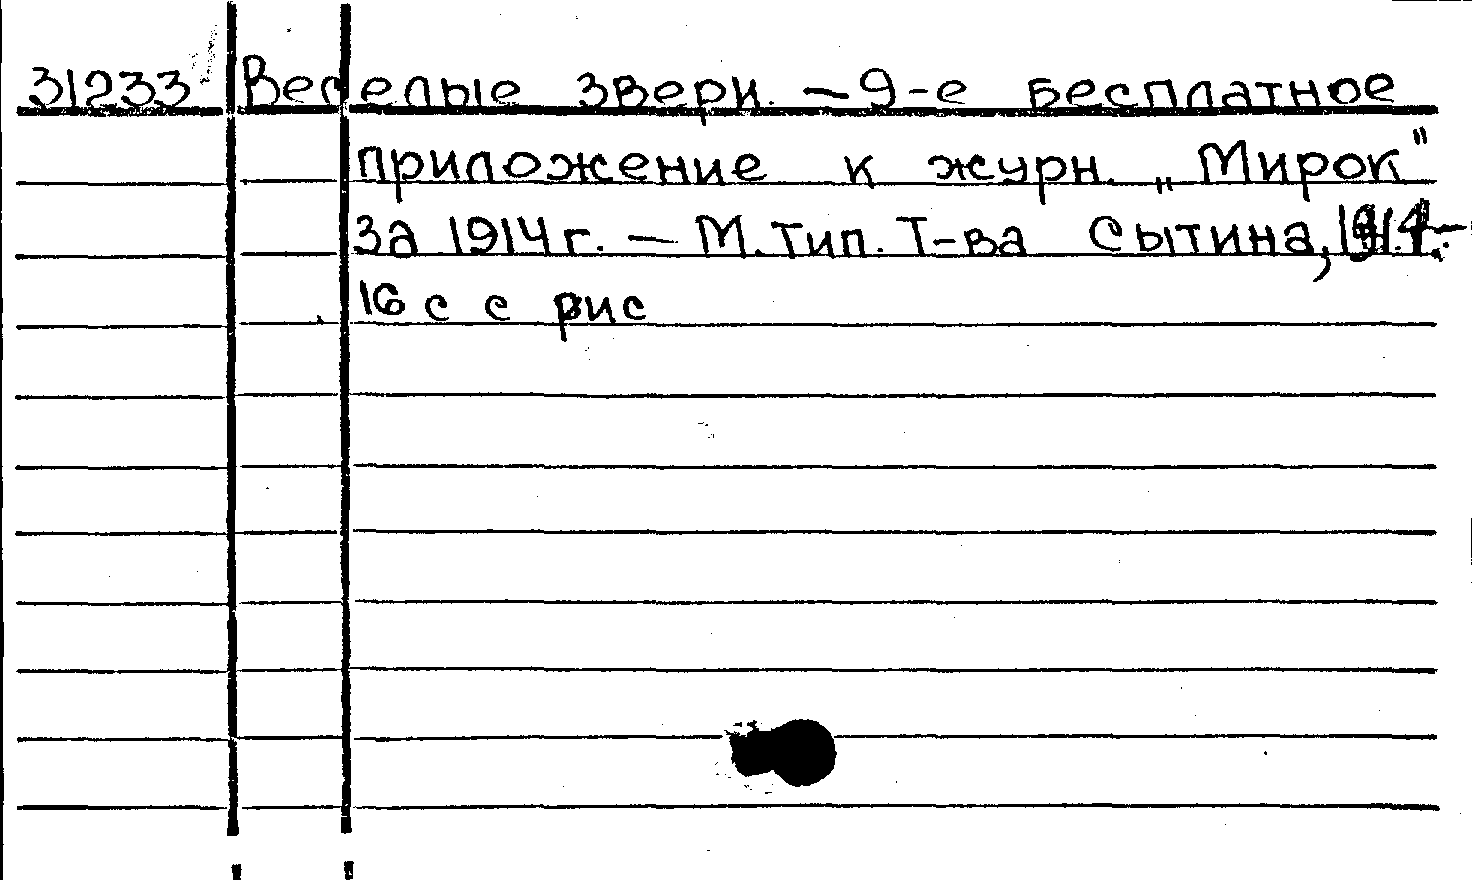 31233 Веселые звери. – 9-е бесплатное
приложение к журн. „Мирок"
за 1914 г. – М. Тип. Т-ва Сытина, 1914. –
16 с с рис